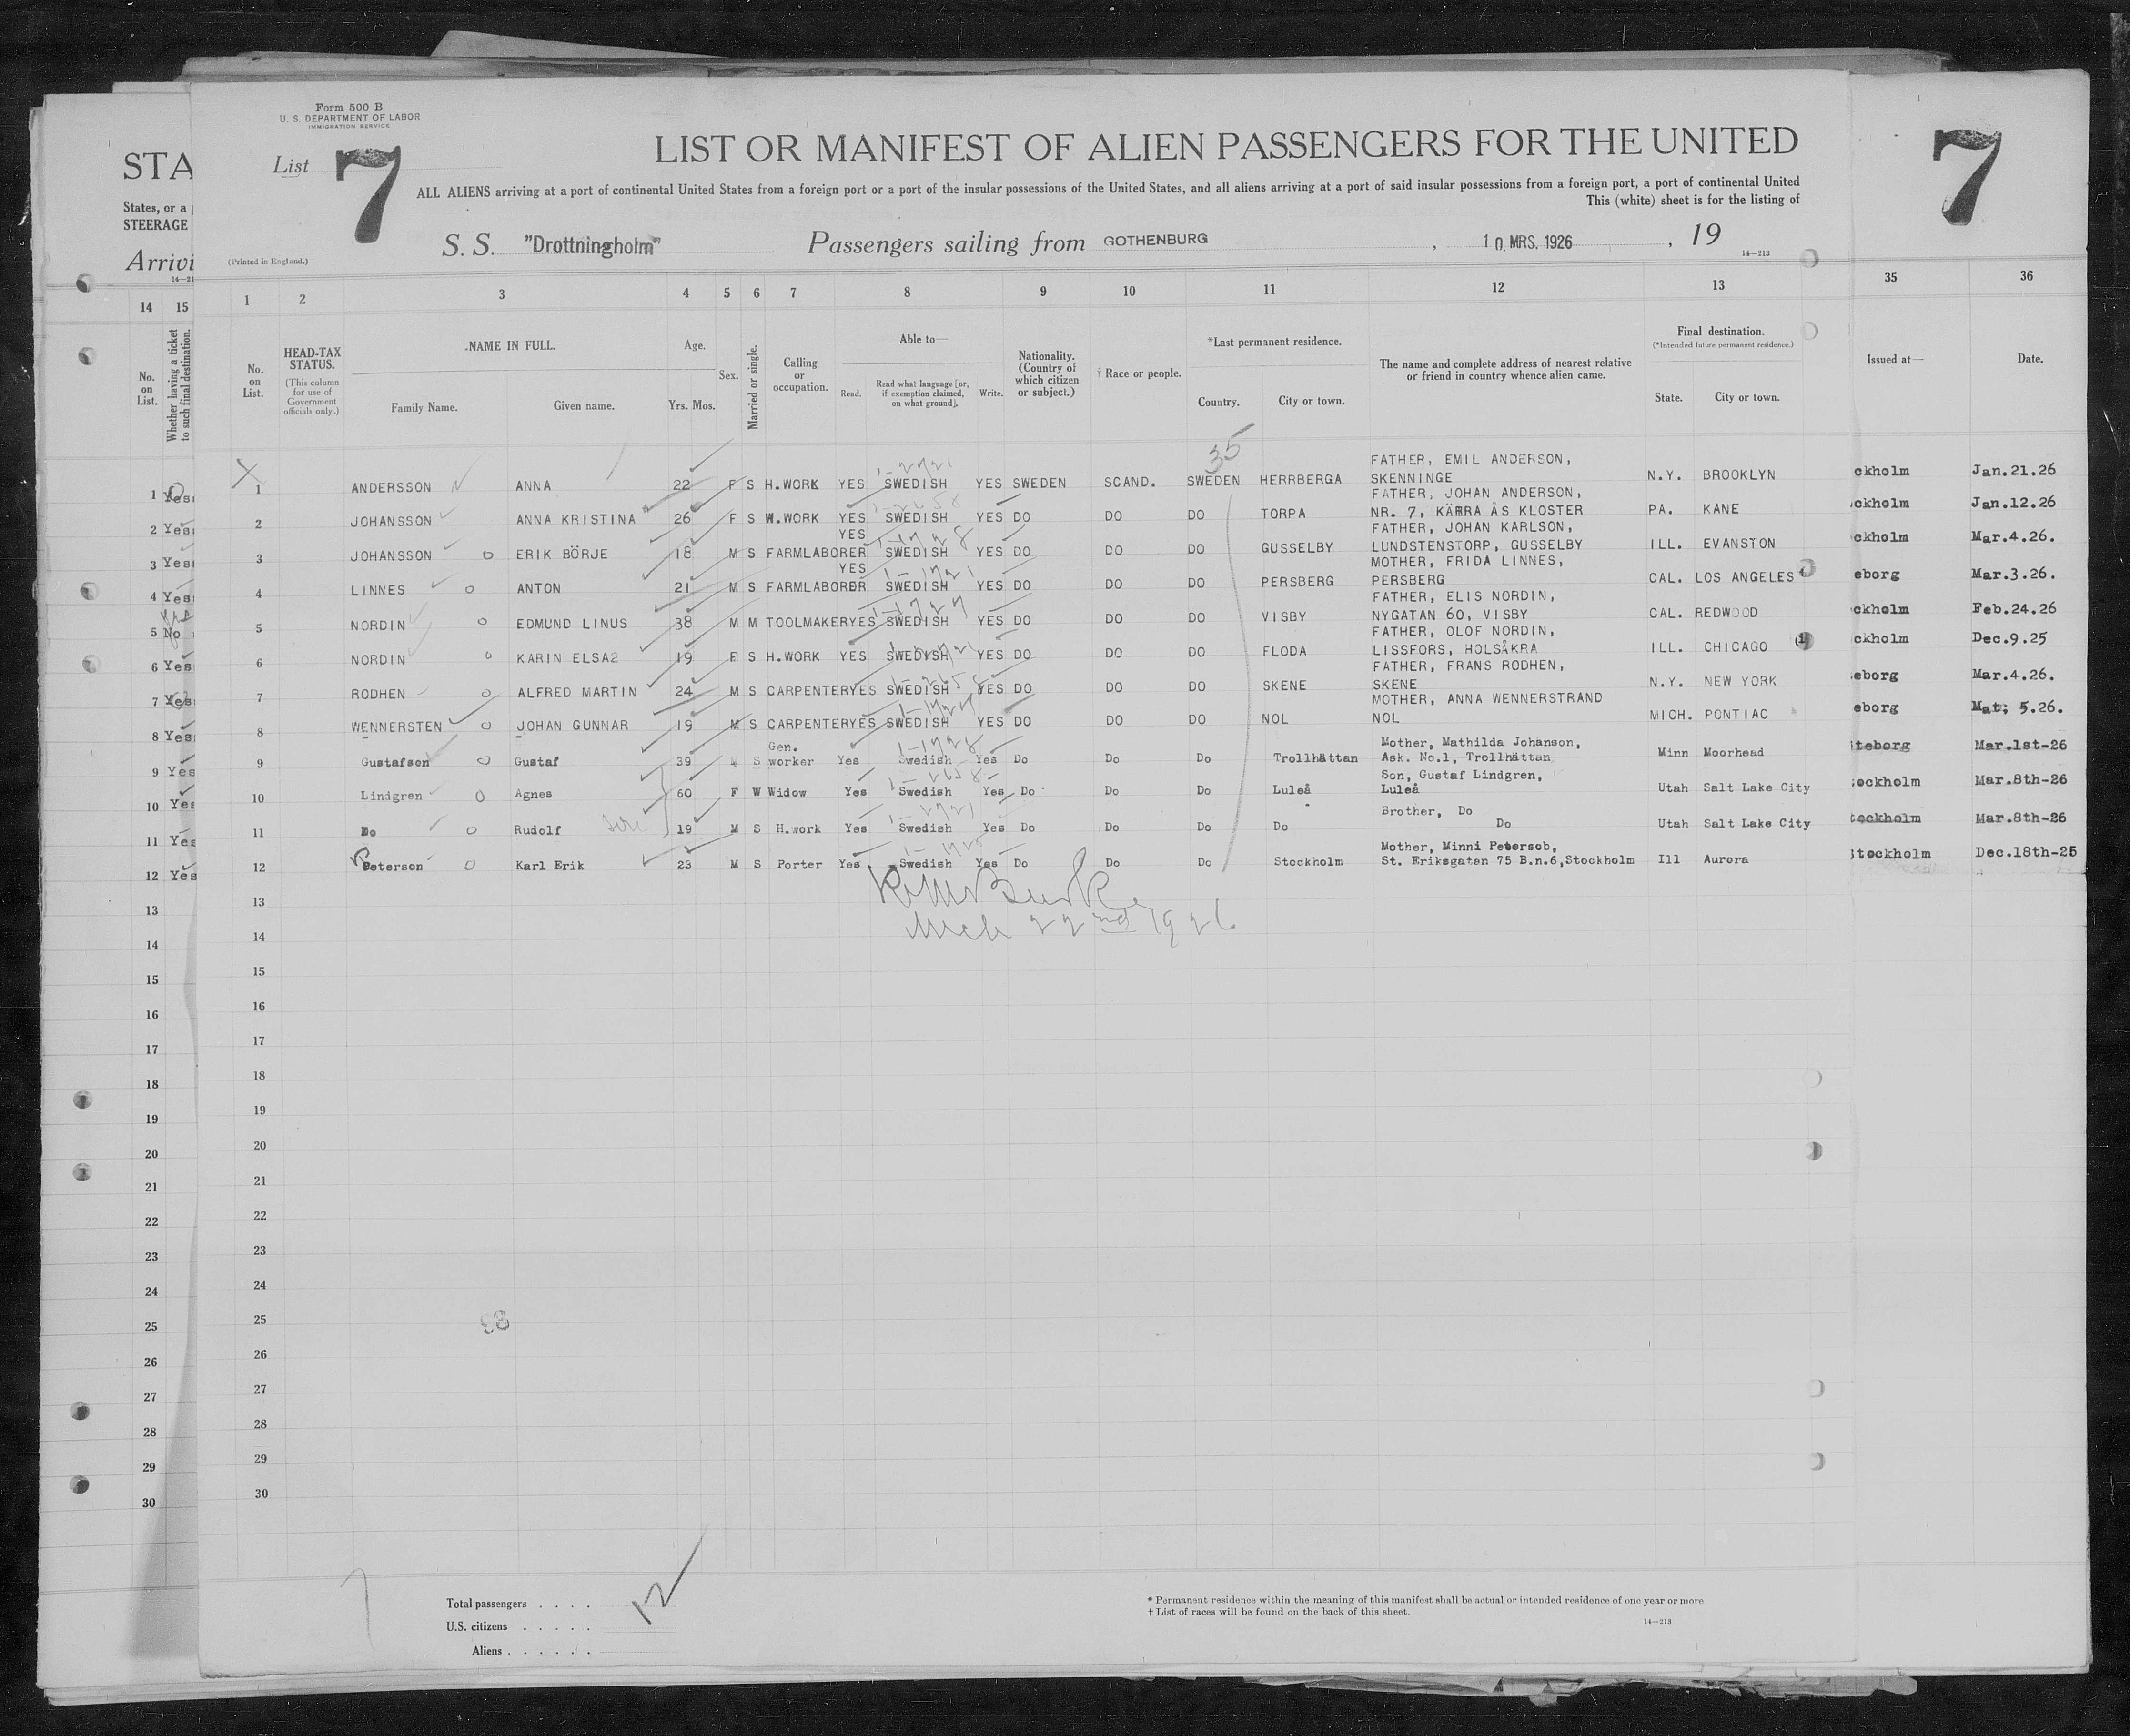 Form 500 B
U. S. DEPARTMENT OF LABOR
IMMIGRATION SERVICE
List 7
LIST OR MANIFEST OF ALIEN PASSENGERS FOR THE UNITED
7
STA
ALL ALIENS arriving at a port of continental United States from a foreign port or a port of the insular possessions of the United States, and all aliens arriving at a port of said insular possessions from a foreign port, a port of continental United
This (white) sheet is for the listing of
States, or a
STEERAGE
Arrivi
S. S. "Drottningholm" Passengers sailing from GOTHENBURG , 10 MRS. 1926 , 19
(Printed in England.)
14—213
14 15 1 2 3 4 5 6 7 8 9 10 11 12 13 35 36
No. on List.
Whether having a ticket to such final destination.
No. on List.
HEAD-TAX STATUS.
(This column for use of Government officials only.)
NAME IN FULL.
Family Name. Given name.
Age.
Yrs. Mos.
Sex.
Married or single.
Calling or occupation.
Able to—
Read. Read what language [or, if exemption claimed, on what ground]. Write.
Nationality. (Country of which citizen or subject.)
† Race or people.
*Last permanent residence.
Country. City or town.
The name and complete address of nearest relative or friend in country whence alien came.
Final destination.
(*Intended future permanent residence.)
State. City or town.
Issued at—
Date.
35
FATHER, EMIL ANDERSON,
1 Yes 1 ANDERSSON ANNA 22 F S H.WORK YES SWEDISH YES SWEDEN SCAND. SWEDEN HERRBERGA SKENNINGE N.Y. BROOKLYN ckholm Jan.21.26
FATHER, JOHAN ANDERSON,
2 Yes 2 JOHANSSON ANNA KRISTINA 26 F S W.WORK YES SWEDISH YES DO DO DO TORPA NR. 7, KÄRRA ÅS KLOSTER PA. KANE ckholm Jan.12.26
YES FATHER, JOHAN KARLSON,
3 Yes 3 JOHANSSON ERIK BÖRJE 18 M S FARMLABORER SWEDISH YES DO DO DO GUSSELBY LUNDSTENSTORP, GUSSELBY ILL. EVANSTON ckholm Mar.4.26.
YES MOTHER, FRIDA LINNES,
4 Yes 4 LINNES ANTON 21 M S FARMLABORER SWEDISH YES DO DO DO PERSBERG PERSBERG CAL. LOS ANGELES eborg Mar.3.26.
FATHER, ELIS NORDIN,
5 No 5 NORDIN EDMUND LINUS 38 M M TOOLMAKER YES SWEDISH YES DO DO DO VISBY NYGATAN 60, VISBY CAL. REDWOOD ckholm Feb.24.26
FATHER, OLOF NORDIN,
6 Yes 6 NORDIN KARIN ELSA2 19 F S H.WORK YES SWEDISH YES DO DO DO FLODA LISSFORS, HOLSÅKRA ILL. CHICAGO ckholm Dec.9.25
FATHER, FRANS RODHEN,
7 Yes 7 RODHEN ALFRED MARTIN 24 M S CARPENTER YES SWEDISH YES DO DO DO SKENE SKENE N.Y. NEW YORK eborg Mar.4.26.
MOTHER, ANNA WENNERSTRAND
8 Yes 8 WENNERSTEN JOHAN GUNNAR 19 M S CARPENTER YES SWEDISH YES DO DO DO NOL NOL MICH. PONTIAC eborg 5.26.
Gen. Mother, Mathilda Johanson,
9 Yes 9 Gustafson Gustaf 39 S worker Yes Swedish Yes Do Do Do Trollhättan Ask. No.1, Trollhättan Minn Moorhead teborg Mar.1st-26
Son, Gustaf Lindgren,
10 Yes 10 Lindgren Agnes 60 F W Widow Yes Swedish Yes Do Do Do Luleå Luleå Utah Salt Lake City ockholm Mar.8th-26
Brother, Do
11 Yes 11 Do Rudolf 19 M S H.work Yes Swedish Yes Do Do Do Do Do Utah Salt Lake City tockholm Mar.8th-26
Mother, Minni Petersob,
12 Yes 12 Peterson Karl Erik 23 M S Porter Yes Swedish Yes Do Do Do Stockholm St. Eriksgatan 75 B.n.6,Stockholm Ill Aurora Stockholm Dec.18th-25
13 13
14 14 Mch 22nd 1926
15 15
16 16
17 17
18 18
19 19
20 20
21 21
22 22
23 23
24 24
25 25
26 26
27 27
28 28
29 29
30 30
Total passengers . . . . 12
U.S. citizens . . . . .
Aliens . . . . . .
* Permanent residence within the meaning of this manifest shall be actual or intended residence of one year or more
† List of races will be found on the back of this sheet.
14—213